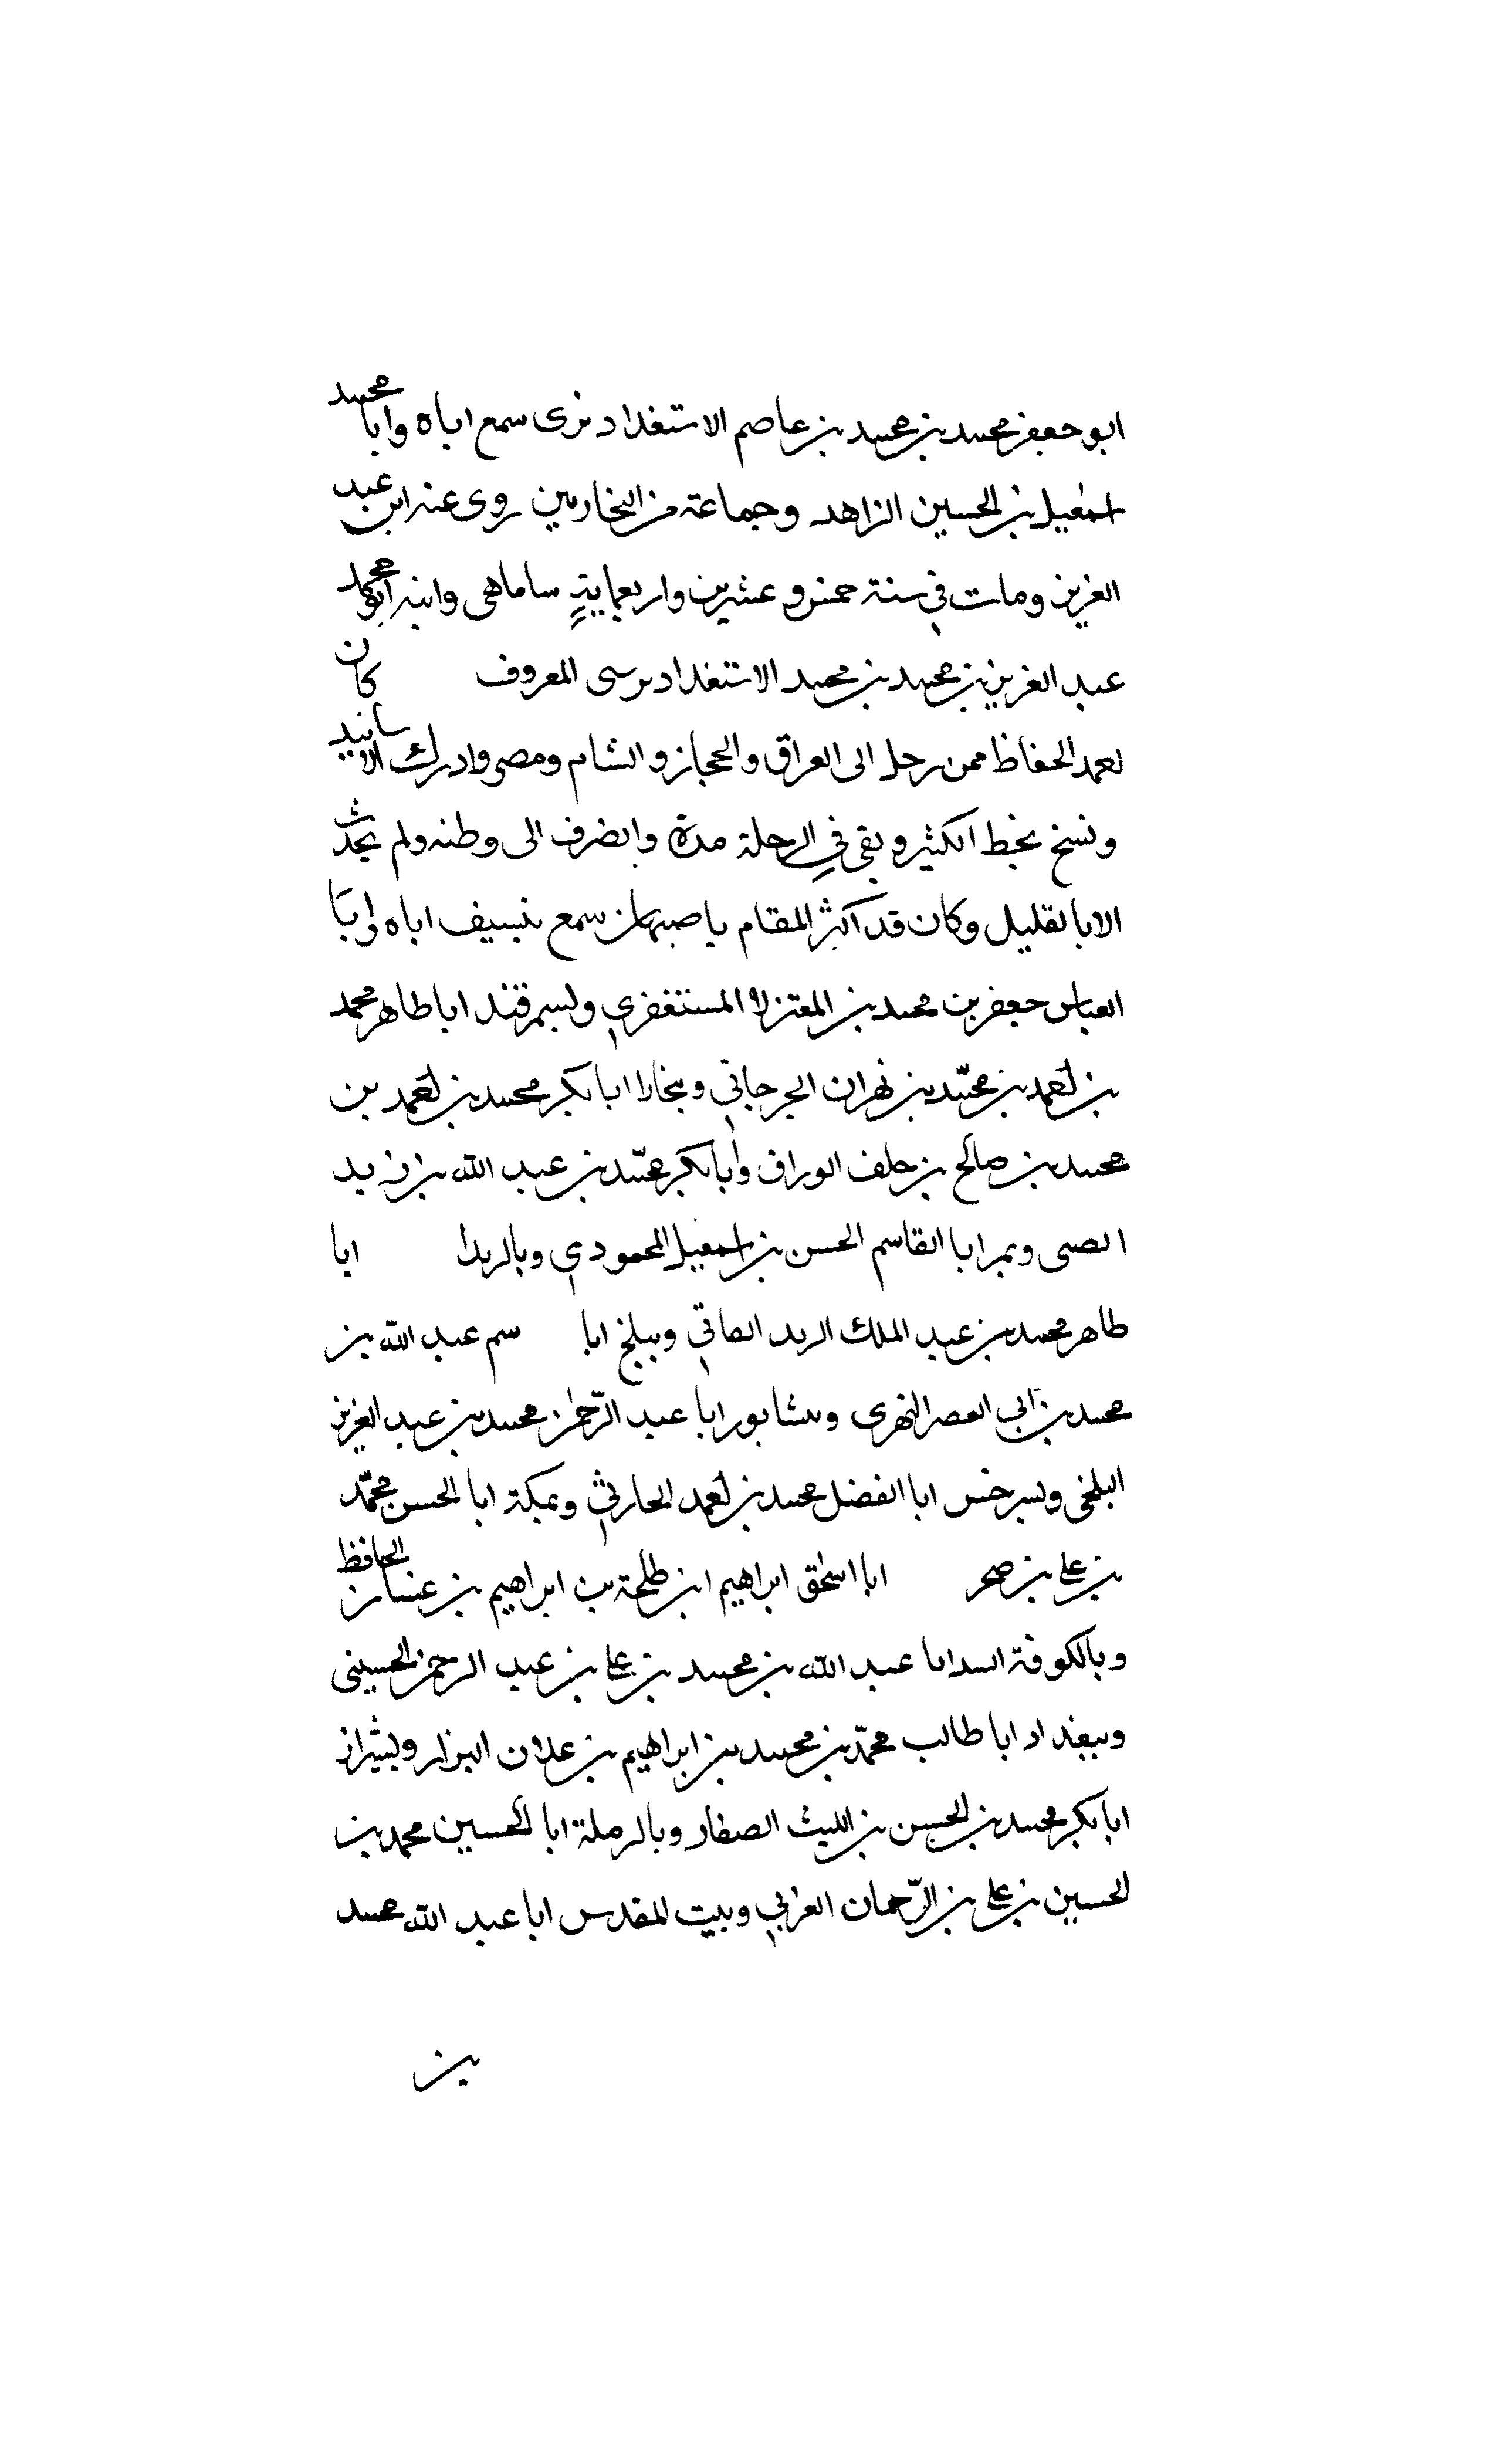 ابو جعفر محمد بن محمد بن عاصم الاستغدادىزى سمع اباه وابا محمد
اسمعيل بن الحسين الزاهد وجماعة من البخاريين روى عنه ابن عبد
العزيز ومات في سنة خمس وعشرين واربعماية وابنه ابو محمد
عبد العزيز بن محمد بن محمد الاستغدادىرسى المعروف كان
احمد الحفاظ ممن رحل الى العراق والحجاز والشام ومصر وادرك الاسانيد
ونسخ بخط الكثير وبقى في الرحلة مدة وانصرف الى وطنه ولم يحدث
الا بالقليل وكان قد اكثر المقام باصبهان سمع بنسف اباه وابا
العباس جعفر بن محمد بن المعتز المستغفري وبسمرقند ابا طاهر محمد
بن احمد بن محمد بن الجرجاني وبخارا ابا بكر محمد بن احمد بن
محمد بن صالح بن خلف الوراق وابا بكر محمد بن عبد الله بن
وبمر ابا القاسم الحسن بن اسمعيل المحمودي ابا
طاهر محمد بن عبد الملك وببلخ ابا عبد الله بن
محمد بن ابى النهرى ونيسابور ابا عبد الرحمن محمد بن عبد العزيز
البلخى وبسرخس ابا الفضل محمد بن احمد الحارثي وبمكة ابا الحسن محمد
بن على بن صخر ابا اسحق ابراهيم ابن طلحة بن ابراهيم بن غسان الحافظ
وبالكوفة عبد الله بن محمد بن على بن عبد الرحمن الحسينى
وببغداد ابا طالب محمد بن محمد بن ابراهيم بن غيلان البزار وبشيراز
ابا بكر محمد بن الحسن بن الليث الصفار وبالرملة ابا الحسين محمد بن
الحسين بن على بن الرحمان وببيت المقدس ابا عبد الله محمد
بن